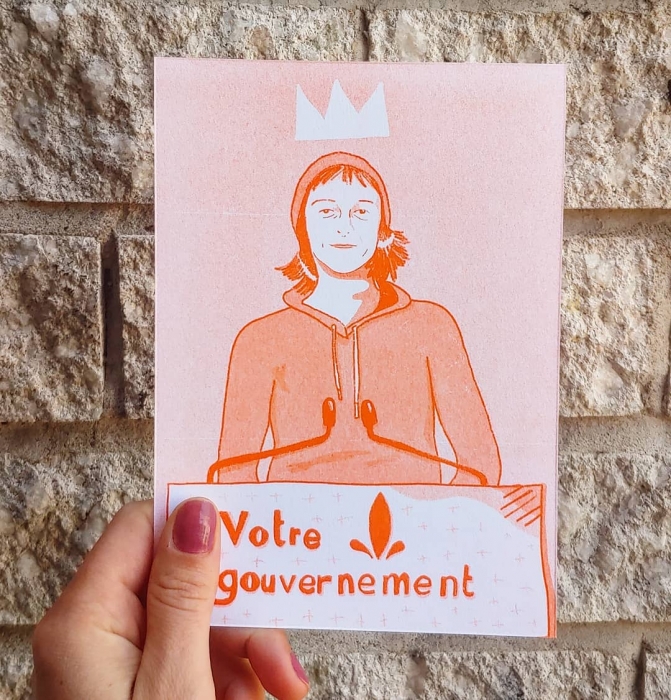 Votre
gouvernement